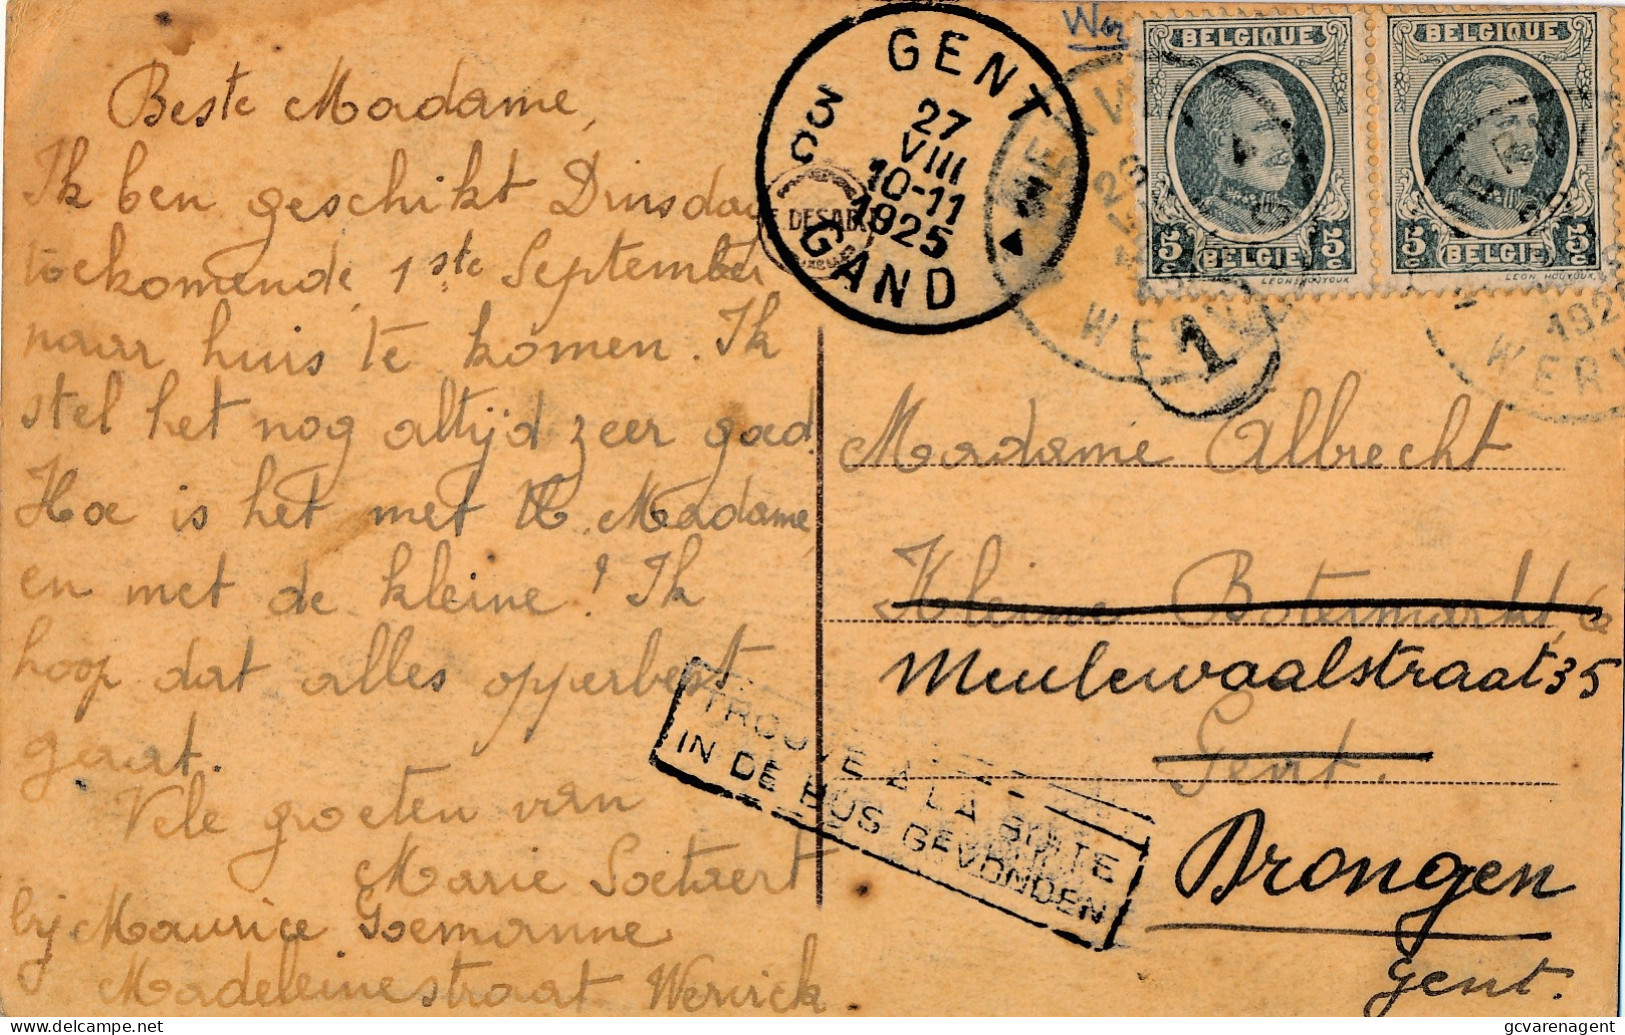 Beste Madame,
Ik ben geschikt Dinsdag
toekomende, 1ste September
naar huis te komen. Ik
stel het nog altijd zeer goed.
Hoe is het met U. Madame,
en met de kleine! Ik
hoop dat alles opperbest
gaat.
Vele groeten van
Marie Soetaert
bij Maurice Goemanne
Madeleinestraat Werwick.
GENT
3
C
27
VIII
10-11
1925
GAND
DESAIX
BELGIQUE
5c 5c
BELGIE
LEON HOUYOUX
BELGIQUE
5c 5c
BELGIE
LEON HOUYOUX
WERV
1
192
WERV
Madame Albrecht
Kleine Botermarkt, 6
Meulewaalstraat 35
Gent.
Drongen
Gent.
TROUVE A LA BOITE
IN DE BUS GEVONDEN
gcvarenagent